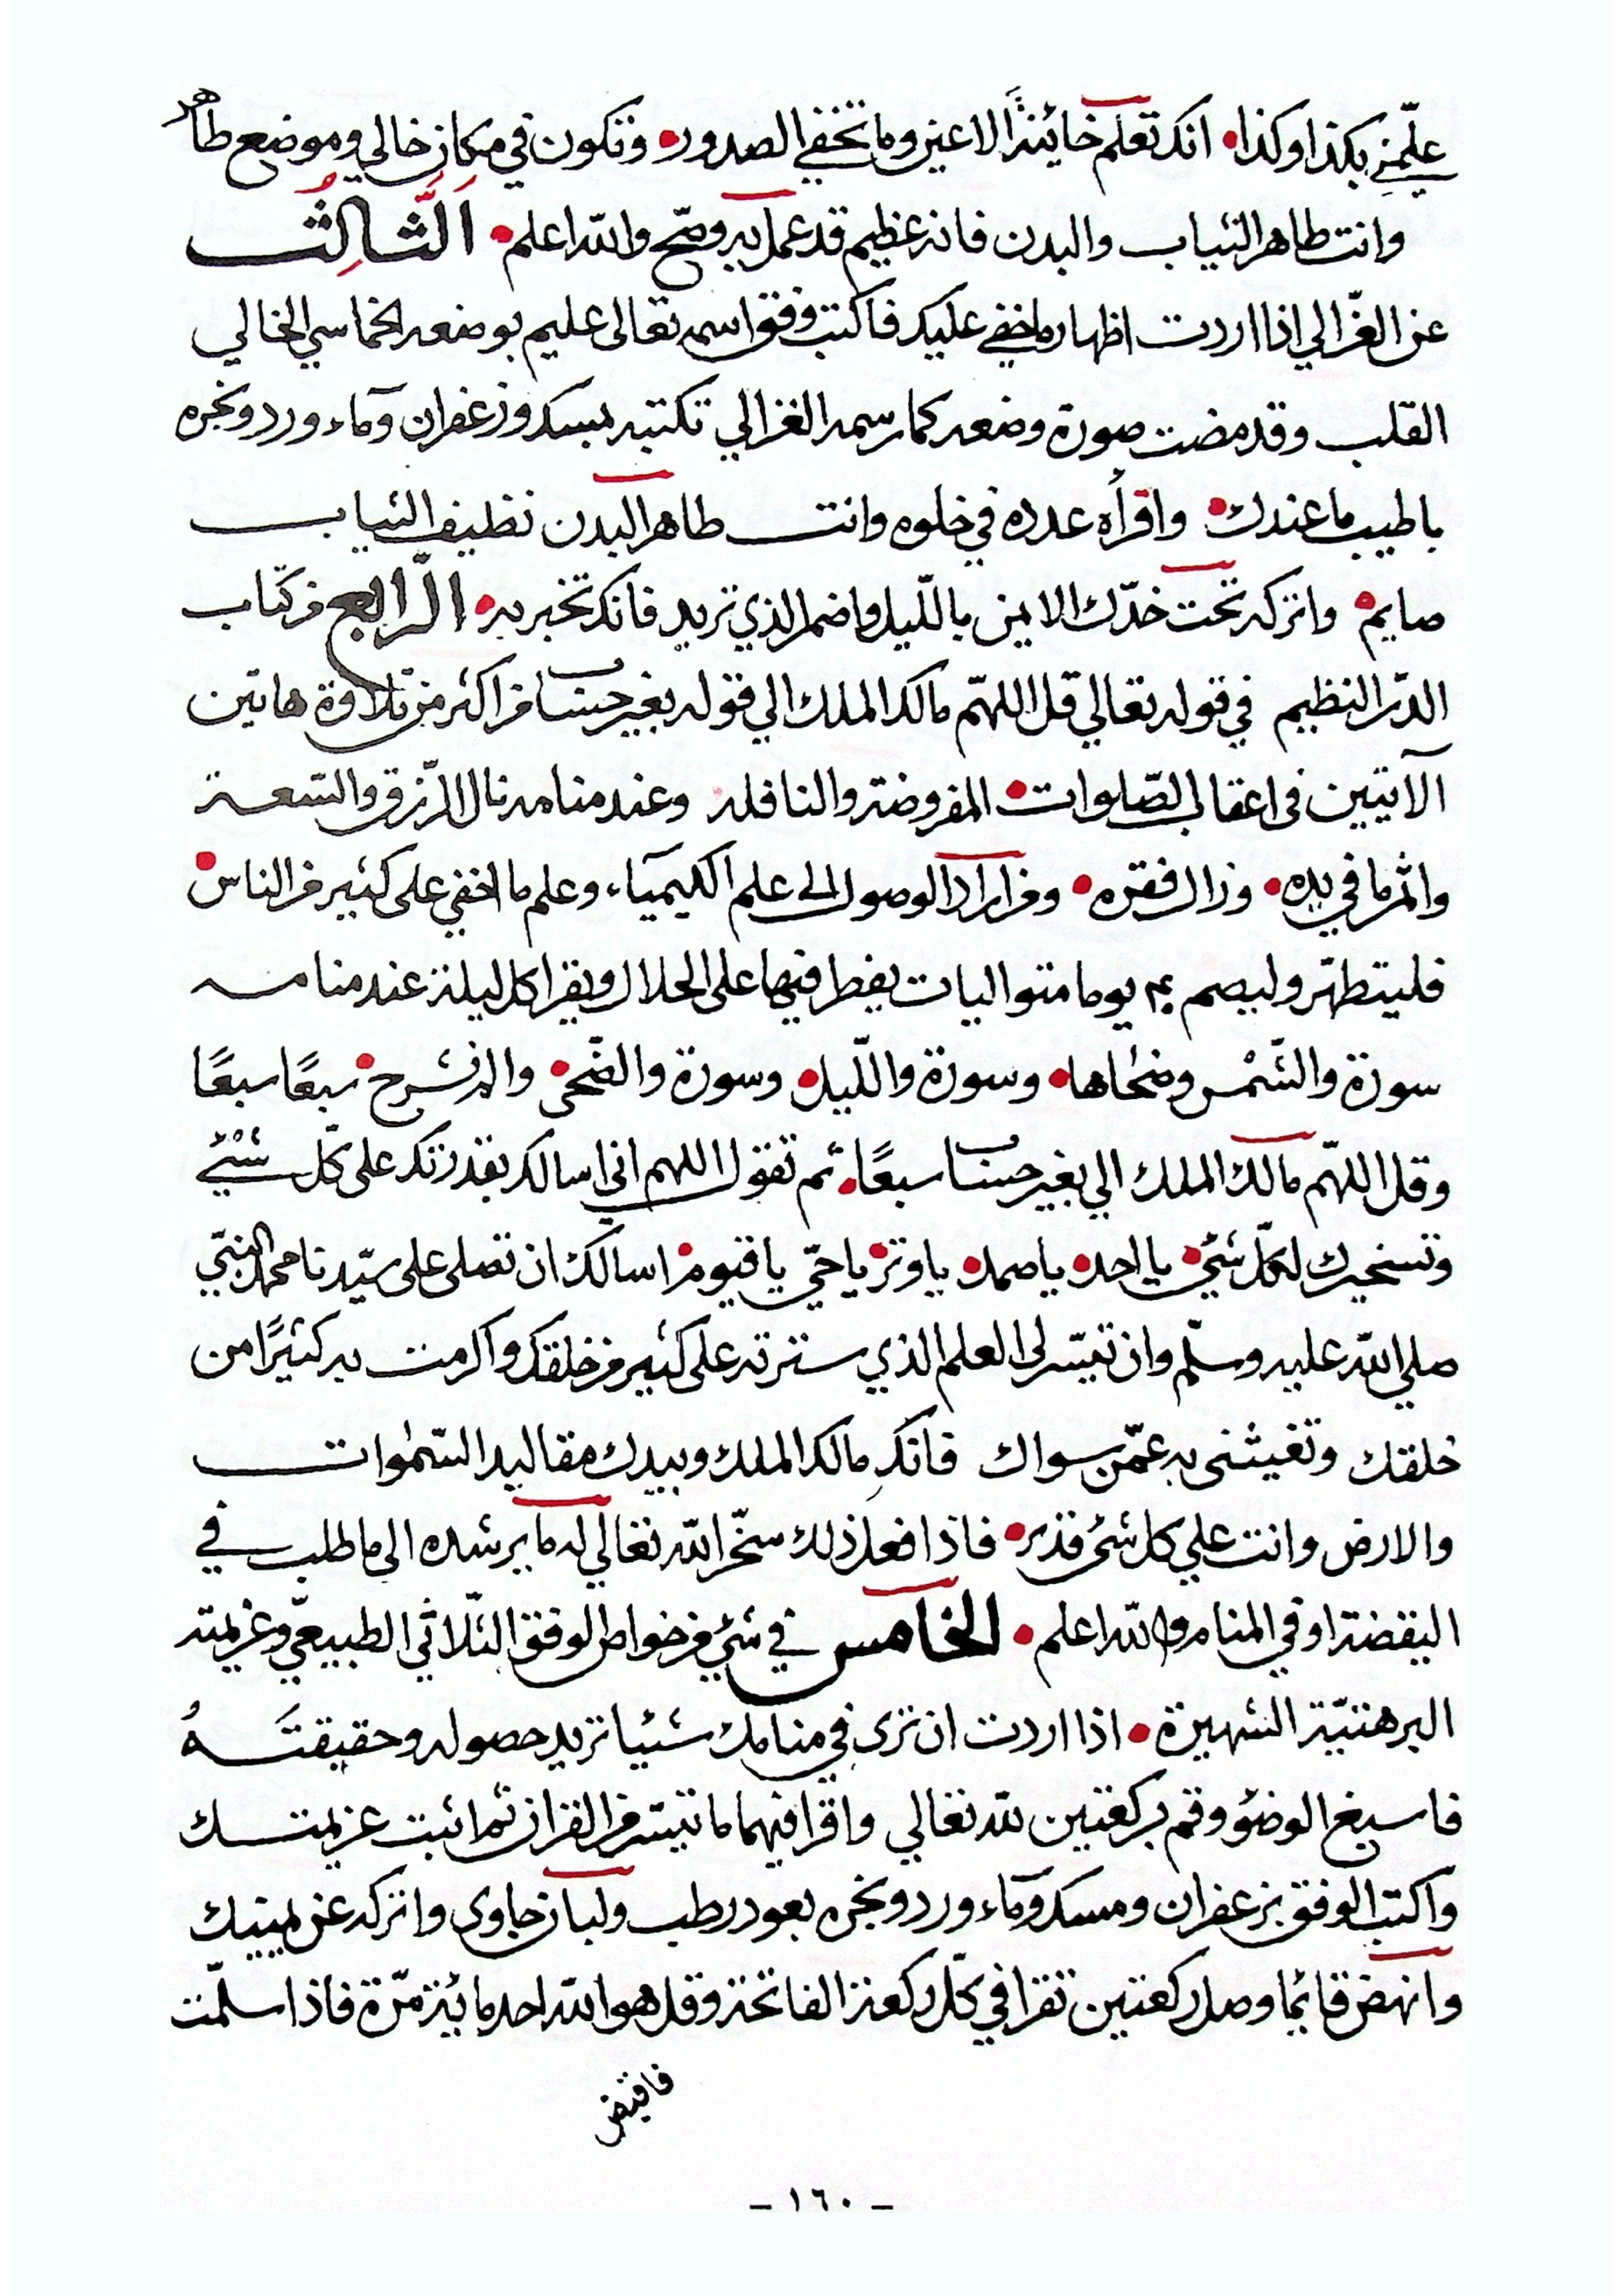 علّمني بكذا وكذا • انك تعلم خائينة الاعين وما تخفي الصدور • وتكون في مكان خالي وموضع طاهر
وانت طاهر الثياب والبدن فانه عظيم قد عمل به وصّح والله اعلم • اَلثَّالِثُ
عن الغزّالي اذا اردت اظهار ما خفي عليك فاكتب وفق اسمه تعالى عليم بوضعه الخماسي الخالي
القلب وقد مضت صورة وضعه كما رسمه الغزالي تكتبه بمسك وزعفران وماء ورد وتبخره
باطيب ما عندك • واقرأه عدده في خلوه وانت طاهر البدن نظيف الثياب
صايم • واتركه تحت خدّك الايمن بالليل واضمر الذي تريد فانك تخبر به • الرّابع من كتاب
الدّر النظيم في قوله تعالي قل اللهمّ مالك الملك الي قوله بغير حساب من اكثر من تلاوة هاتين
الآيتين فى اعقاب الصّلوات • المفروضة والنافله وعند منامه نال الرّزق والسّعة
واثمر ما في يده • وزال فقره • ومن اراد الوصول الى علم الكيمياء وعلم ما اخفي على كثير من الناس •
فليتطهّر وليصم ٤٠ يوما متواليات يفطر فيها على الحلال ويقرا كل ليلة عند منامه
سورة والشّمس وضحٰاها • وسورة واللّيل • وسورة والضّحى • والم نشرح • سبعًا سبعًا
وقل اللهمّ مالك الملك الي بغير حساب سبعًا • ثم تقول اللهم اني اسالك بقدرتك على كلّ شَيْئٍ
وتسخيرك لكلّ شئ • يا احد • يا صمد • يا وتر • يا حيّ يا قيوم • اسالك ان تصلى على سيّدنا محمد النبيّ
صلي الله عليه وسلّم وان تيسّر لى العلم الذي سترته على كثير من خلقك واكرمت به كثيرًا من
خلقك وتغيثنى به عمّن سواك فانكَ مالك الملك وبيدك مقاليد السّمٰوات
والارض وانت علي كل شئ قدير • فاذا فعل ذلك سخّر الله تعالي له ما يرشده الى ما طلب في
اليقضة او في المنام والله اعلم • الخامس في شئ من خواص الوفق الثّلاثي الطبيعيّ وعزيمته
البرهتيّة الشهيرة • اذا اردت ان ترى في منامك شئيا تريد حصوله وحقيقتَهُ
فاسبغ الوضؤ وقم بركعتين لله تعالي واقرا فيهما ما تيسّر من القران ثم اثبت عزيمتك
واكتب الوفق بزعفران ومسك وماء ورد وتبخره بعود رطب ولبان جاوى واتركه عن يمينك
وانهض قائما وصل ركعتين تقرا في كلّ ركعة الفاتحة وقل هو الله احد مائية مرّة فاذا سلّمت
فاقبض
- ١٦٠ -